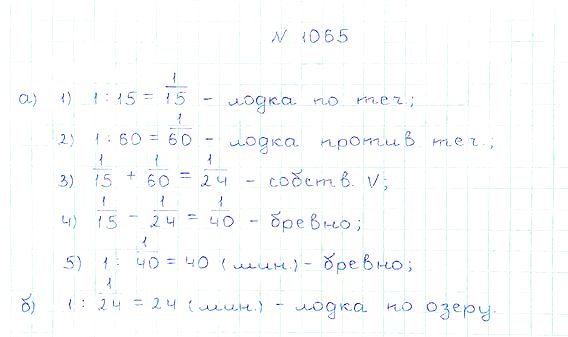 N 1065
а) 1) 1 : 15 = 1/15 - лодка по теч.;
2) 1 : 60 = 1/60 - лодка против теч.;
3) 1/15 + 1/60 = 1/24 - собств. V;
4) 1/15 - 1/24 = 1/40 - бревно;
5) 1 : 1/40 = 40 (мин.) - бревно;
б) 1 : 1/24 = 24 (мин.) - лодка по озеру.